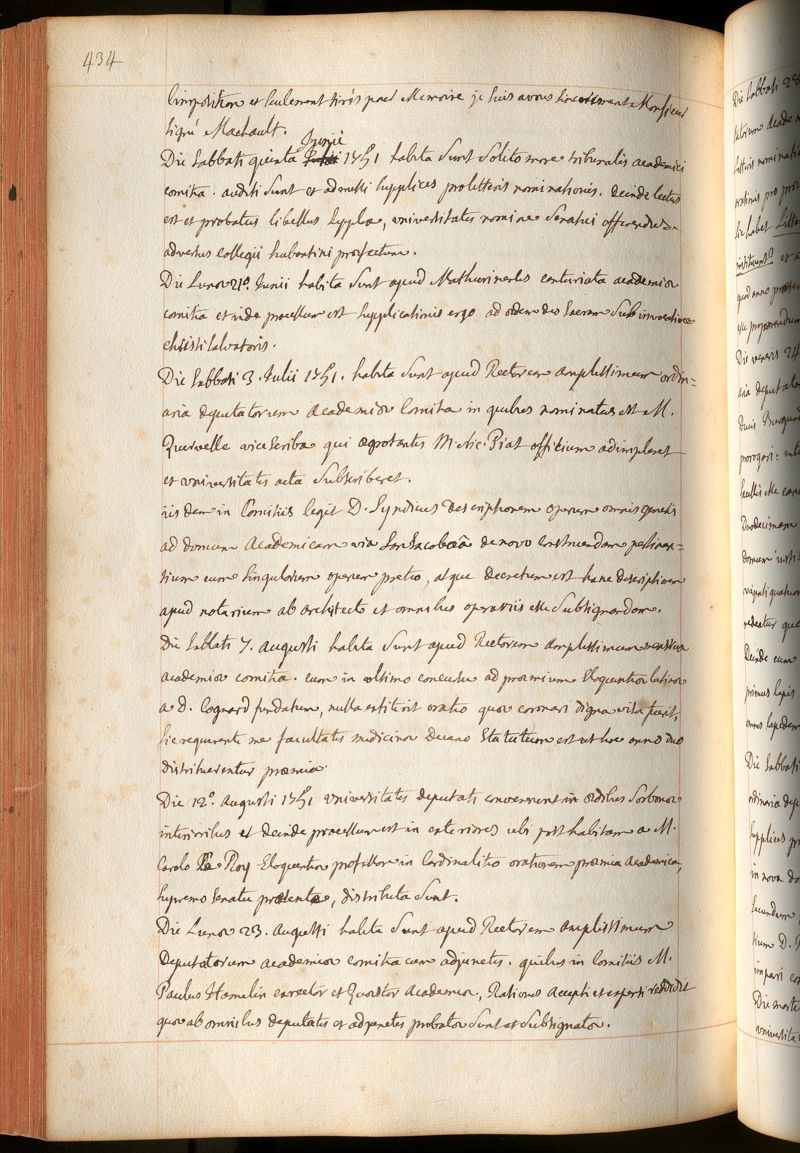 434
l'imposition et seulement tirés par Memoire je suis avous sincerement Monsieur
signé Machault.
Junii
Die Sabbati quinta 1751 habita sunt solito more tribunalis academici
comitia. auditi sunt et admissi supplices pro litteris nominationis. deinde lectus
est et probatus libellus supplex, universitatis nomine senatui offerendus
adversus collegii hubantini profectum.
Die Lunae 21a. Junii habita sunt apud Mathurinenses centuriata academiae
comitia et inde processum est supplicationis ergo ad aedem deo sacram sub invocatione
christi salvatoris.
Die Sabbati 3. Julii 1751. habita sunt apud Rectorem amplissimum ordin=
aria deputatorum academiae comitia in quibus nominatus est M.
Quervelle vicescriba qui aegrotantis M. Nic. Piat officium adimpleret
et universitatis acta subscriberet.
iis dem in Comitiis legit D. Syndicus descriptionem operum omnis generis
ad domum academicam via San Jacobaeâ de novo construendam pertinen=
tium cum singulorum operum pretio, atque decretum est hanc descriptionem
apud notarium ab architecto et omnibus operariis esse subsignandam.
Die Sabbati 7. augusti habita sunt apud Rectorem amplissimum menstrua
academiae comitia. cum in ultimo concursu ad praemium Eloquentiae latinae
a D. Cognard fundatum, nulla extiterit oratio quae coronari digna visa fuerit,
sic requirente me facultatis medicinae decano statutum est ut hoc anno duo
distribuerentur praemia.
Die 12a. augusti 1751 universitatis deputati convenerunt in aedibus Sorbonae
interioribus et deinde processum est in exteriores ubi post habitam a M.
Carolo Le Roy Eloquentiae professore in Cardinalitio orationem praemia academica,
supremo senatu praesente, distributa sunt.
Die Lunae 23. augusti habita sunt apud Rectorem amplissimum
Deputatorum academiae comitia cum adjunctis. quibus in comitiis M.
Paulus Hamelin exrector et Quaestor academiae, Rationes accepti et experti reddidit
quae ab omnibus deputatis et adjunctis probatae sunt et subsignatae.